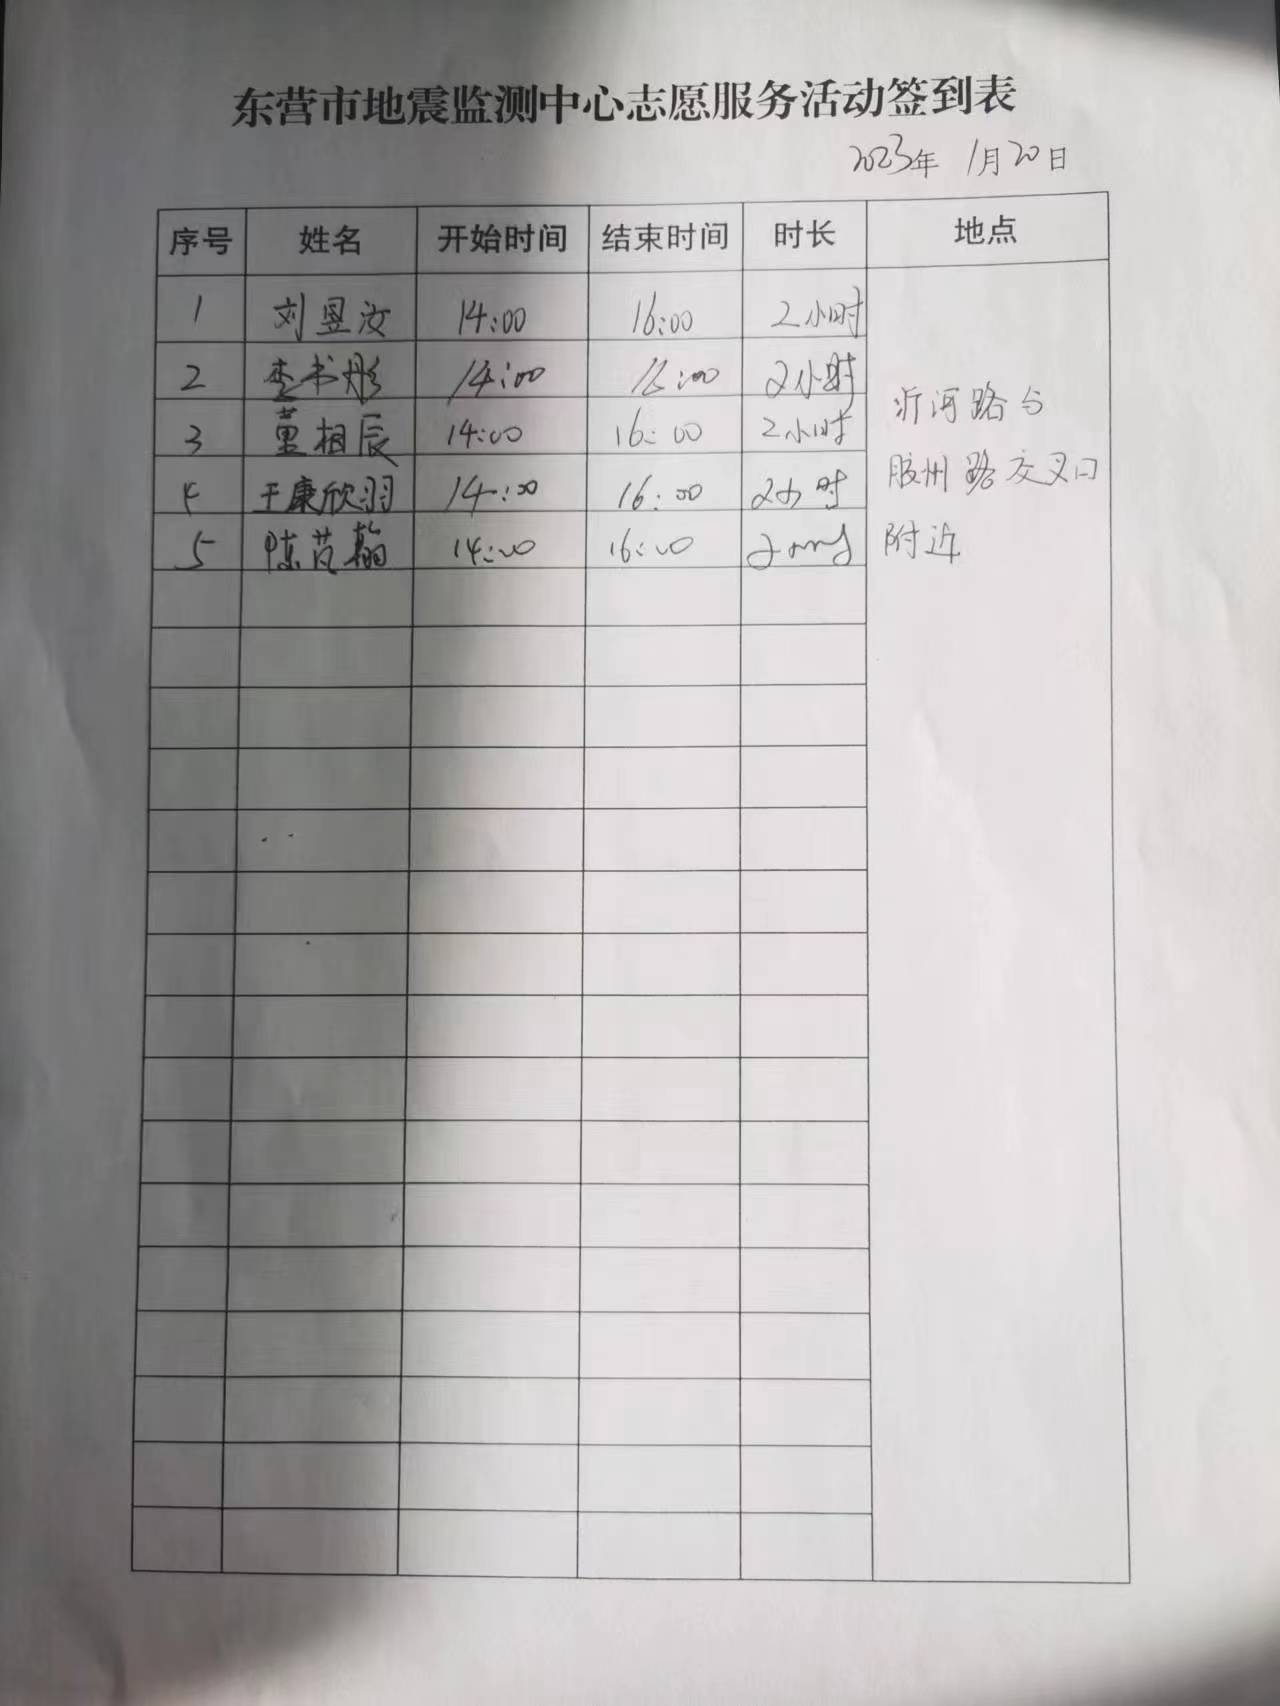 东营市地震监测中心志愿服务活动签到表
2023年 1月20日
序号 姓名 开始时间 结束时间 时长 地点
1 刘昱汝 14:00 16:00 2小时
2 李书彤 14:00 16:00 2小时
3 董相辰 14:00 16:00 2小时
4 王康欣羽 14:00 16:00 2小时
5 陈芃翰 14:00 16:00 2小时
沂河路与
胶州路交叉口
附近